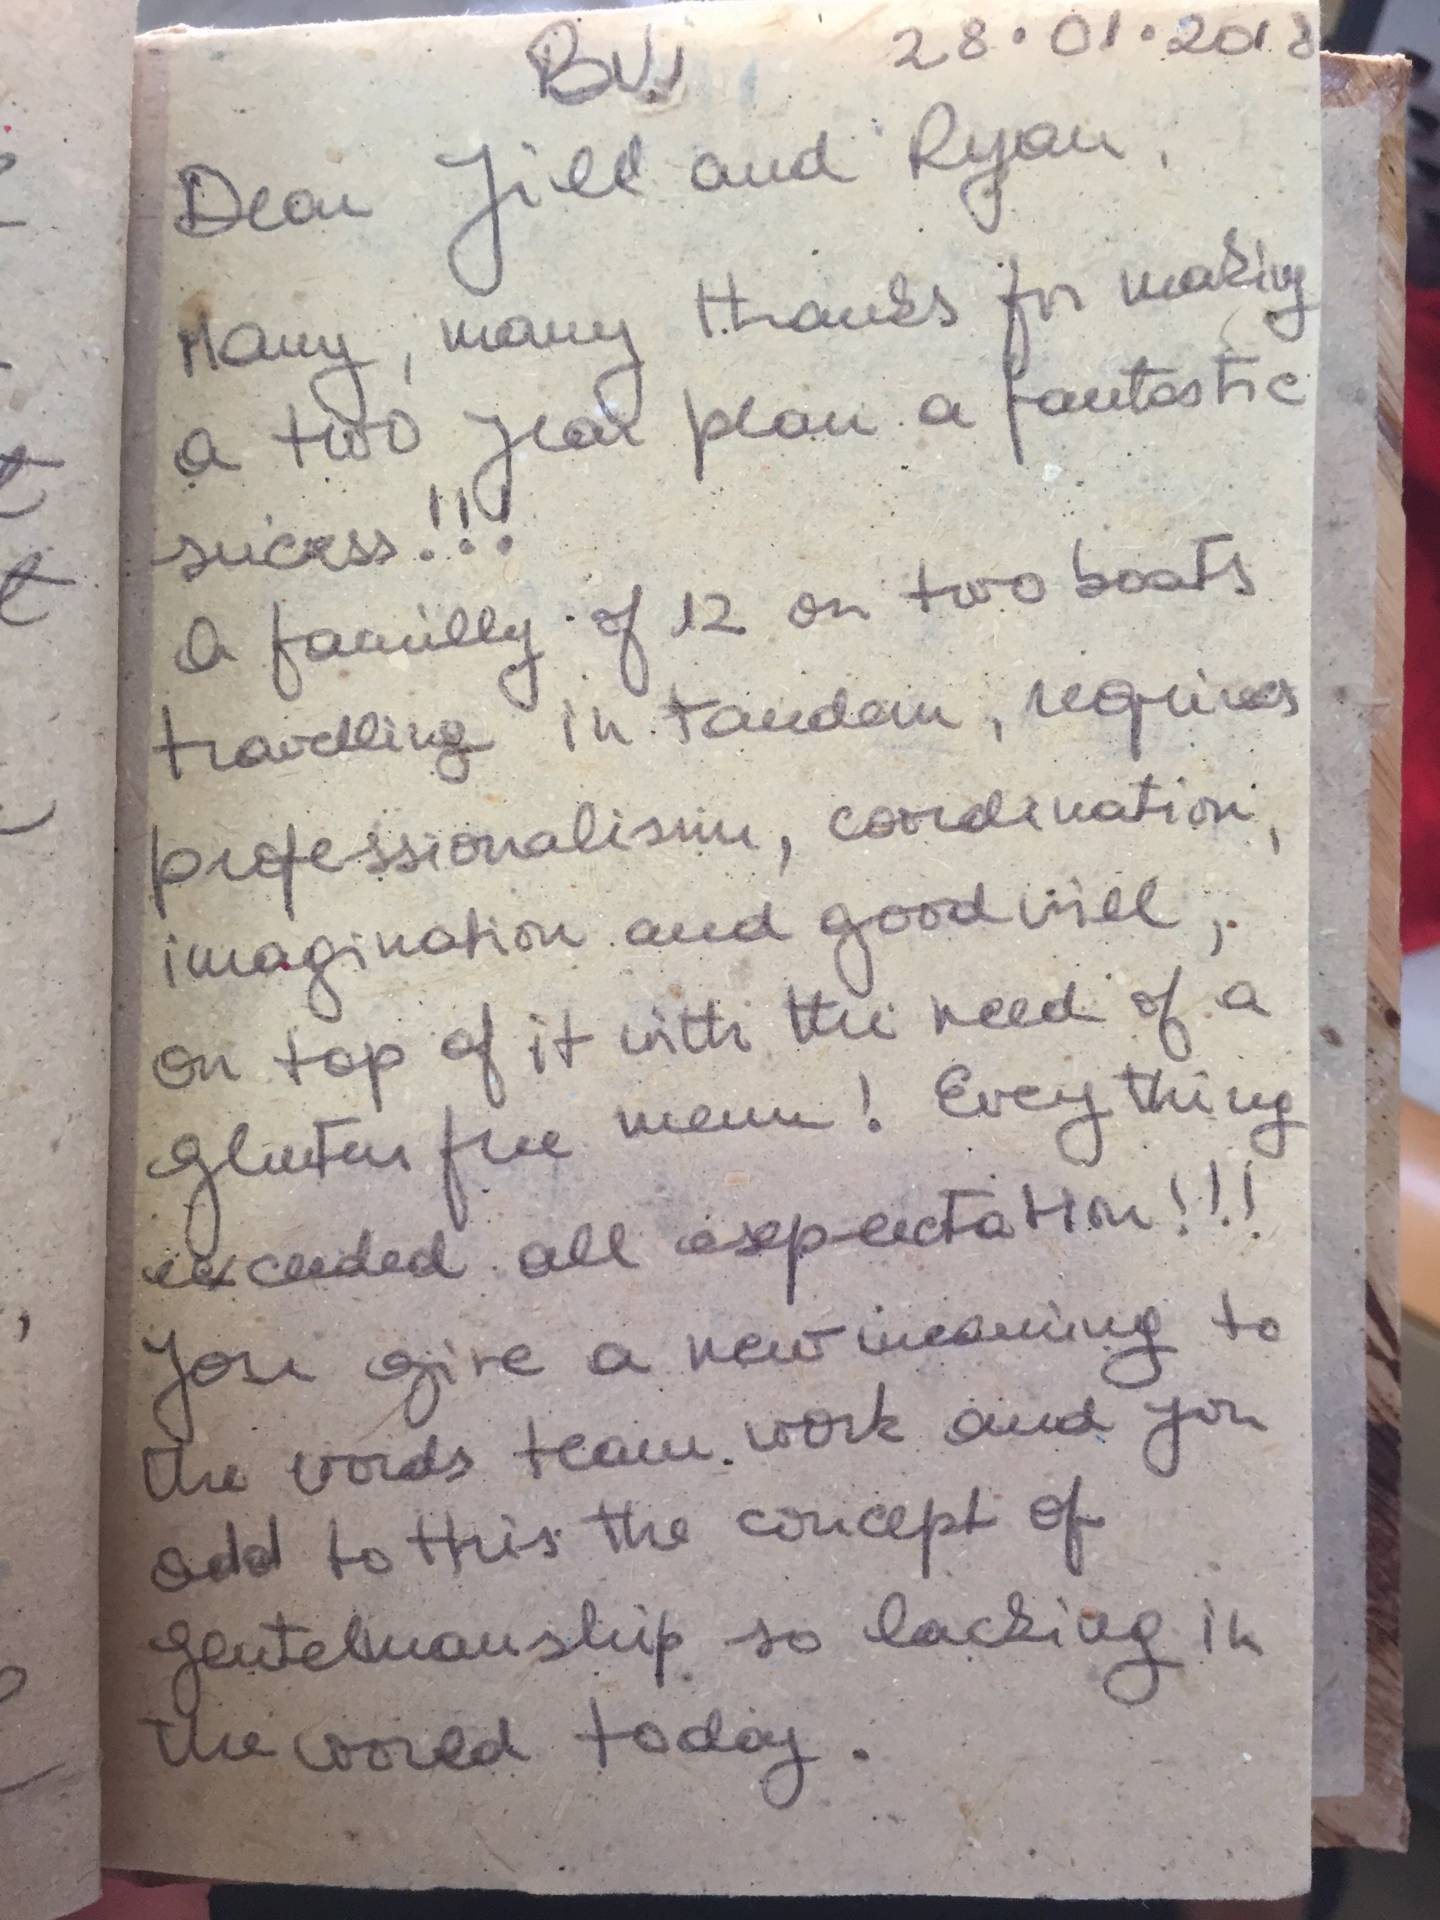 BVI 28.01.2018
Dear Jill and Ryan,
Many, many thanks for making
a two year plan a fantastic
sucess!!!
A familly of 12 on two boats
travelling in tandem, requires
professionalism, coordination,
imagination and goodwill,
on top of it with the need of a
gluten free menu! Everything
exceeded all expectation!!!
You give a new meaning to
the words team work and you
add to this the concept of
gentelmanship so lacking in
the world today.